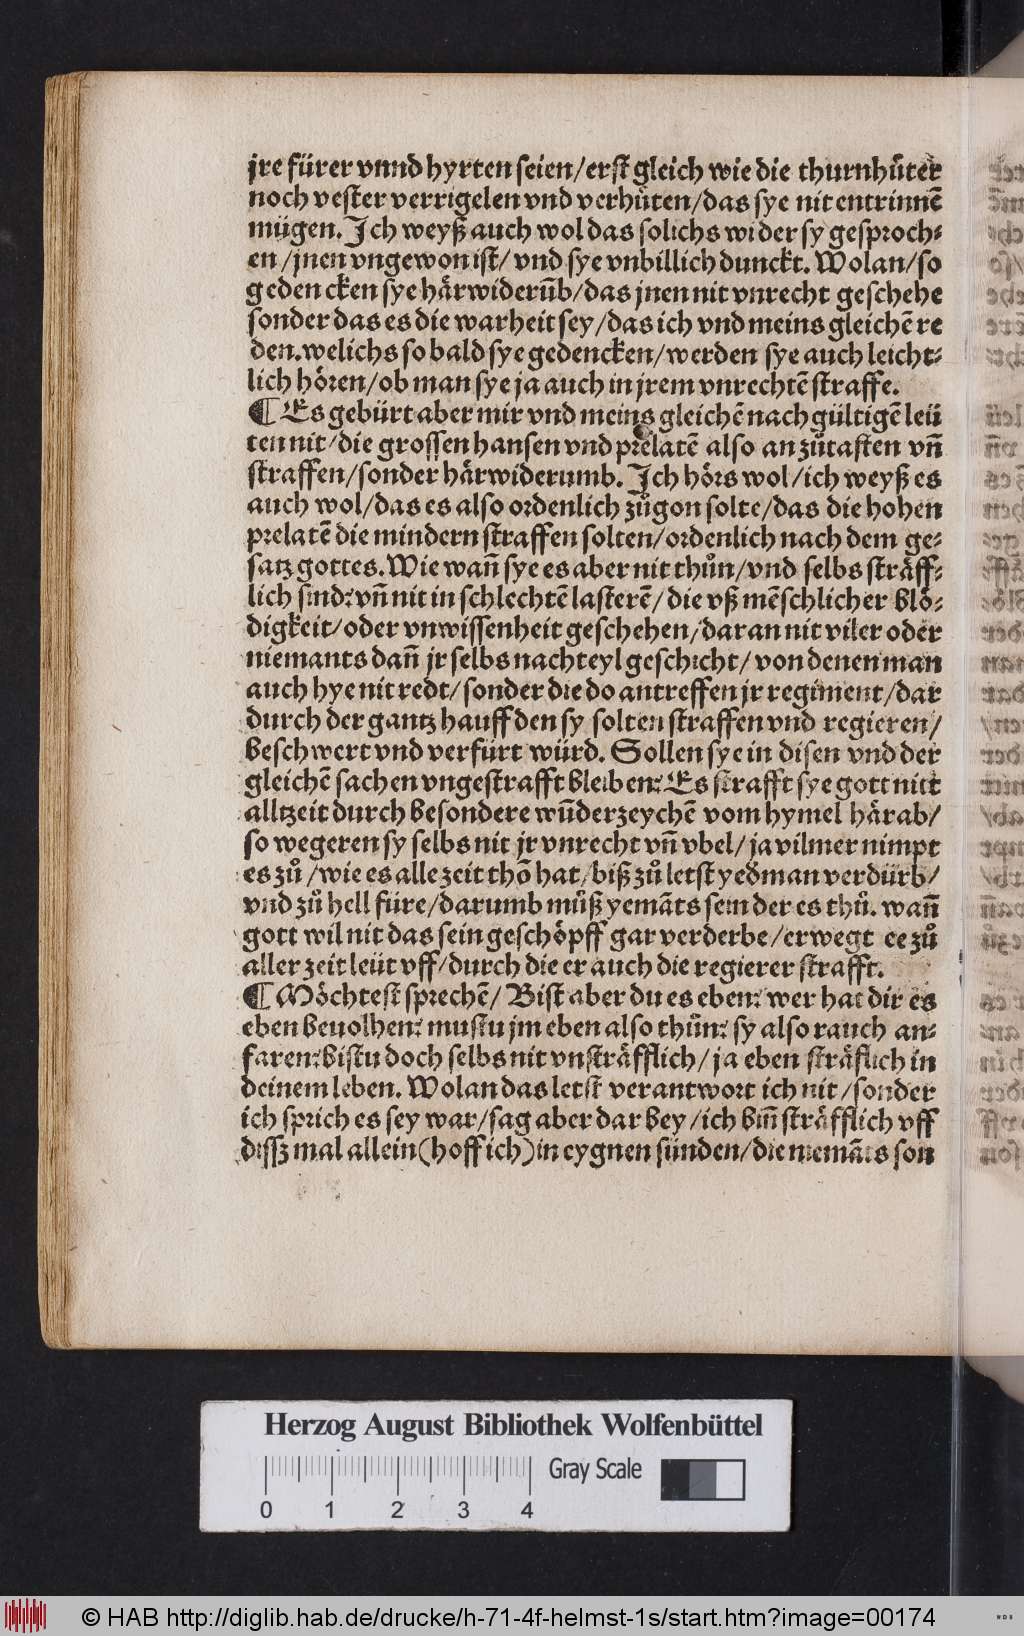 jre fürer vnnd hyrten seien/erst gleich wie die thurnhůter
noch vester verrigelen vnd verhůten/das sye nit entrinnẽ
mügen. Ich weyß auch wol das solichs wider sy gesproch⸗
en/jnen vngewon ist/ vnd sye vnbillich dunckt. Wolan/so
gedencken sye hårwiderũb/das jnen nit vnrecht geschehe
sonder das es die warheit sey/das ich vnd meins gleichẽ re
den. welichs so bald sye gedencken/werden sye auch leicht⸗
lich hören/ob man sye ja auch in jrem vnrechtẽ straffe.
¶ Es gebürt aber mir vnd meins gleichẽ nachgültigẽ leü
ten nit/die grossen hansen vnd prelatẽ also anzůtasten vñ
straffen/sonder härwiderumb. Ich hörs wol/ich weyß es
auch wol/das es also ordenlich zůgon solte/das die hohen
prelatẽ die mindern straffen solten/ordenlich nach dem ge⸗
satz gottes. Wie wañ sye es aber nit thůn/vnd selbs sträff⸗
lich sind: vñ nit in schlechtẽ lasterẽ/die vß mẽschlicher blö⸗
digkeit/oder vnwissenheit geschehen/daran nit viler oder
niemants dañ jr selbs nachteyl geschicht/ von denen man
auch hye nit redt/sonder die do antreffen jr regiment/dar
durch der gantz hauff den sy solten straffen vnd regieren/
beschwert vnd verfürt würd. Sollen sye in disen vnd der
gleichẽ sachen vngestrafft bleiben: Es strafft sye gott nitt
alltzeit durch besondere wũderzeychẽ vom hymel härab/
so wegeren sy selbs nit jr vnrecht vñ vbel/ ja vilmer nimpt
es zů/wie es alle zeit thõ hat/biß zů letst yeðman verdürb/
vnd zů hell füre/darumb můß yemãts sein der es thů. wañ
gott wil nit das sein geschöpff gar verderbe/erwegt ee zů
aller zeit leüt vff/durch die er auch die regierer strafft.
¶ Möchtest sprechẽ/ Bist aber du es eben: wer hat dir es
eben beuolhen: mustu jm eben also thůn: sy also rauch an⸗
faren: bistu doch selbs nit vnsträfflich/ ja eben sträflich in
deinem leben. Wolan das letst verantwort ich nit/sonder
ich sprich es sey war/sag aber darbey/ich biñ sträfflich vff
dissz mal allein (hoff ich) in eygnen sünden/die niemãts son
Herzog August Bibliothek Wolfenbüttel
Gray Scale
0 1 2 3 4
© HAB http://diglib.hab.de/drucke/h-71-4f-helmst-1s/start.htm?image=00174